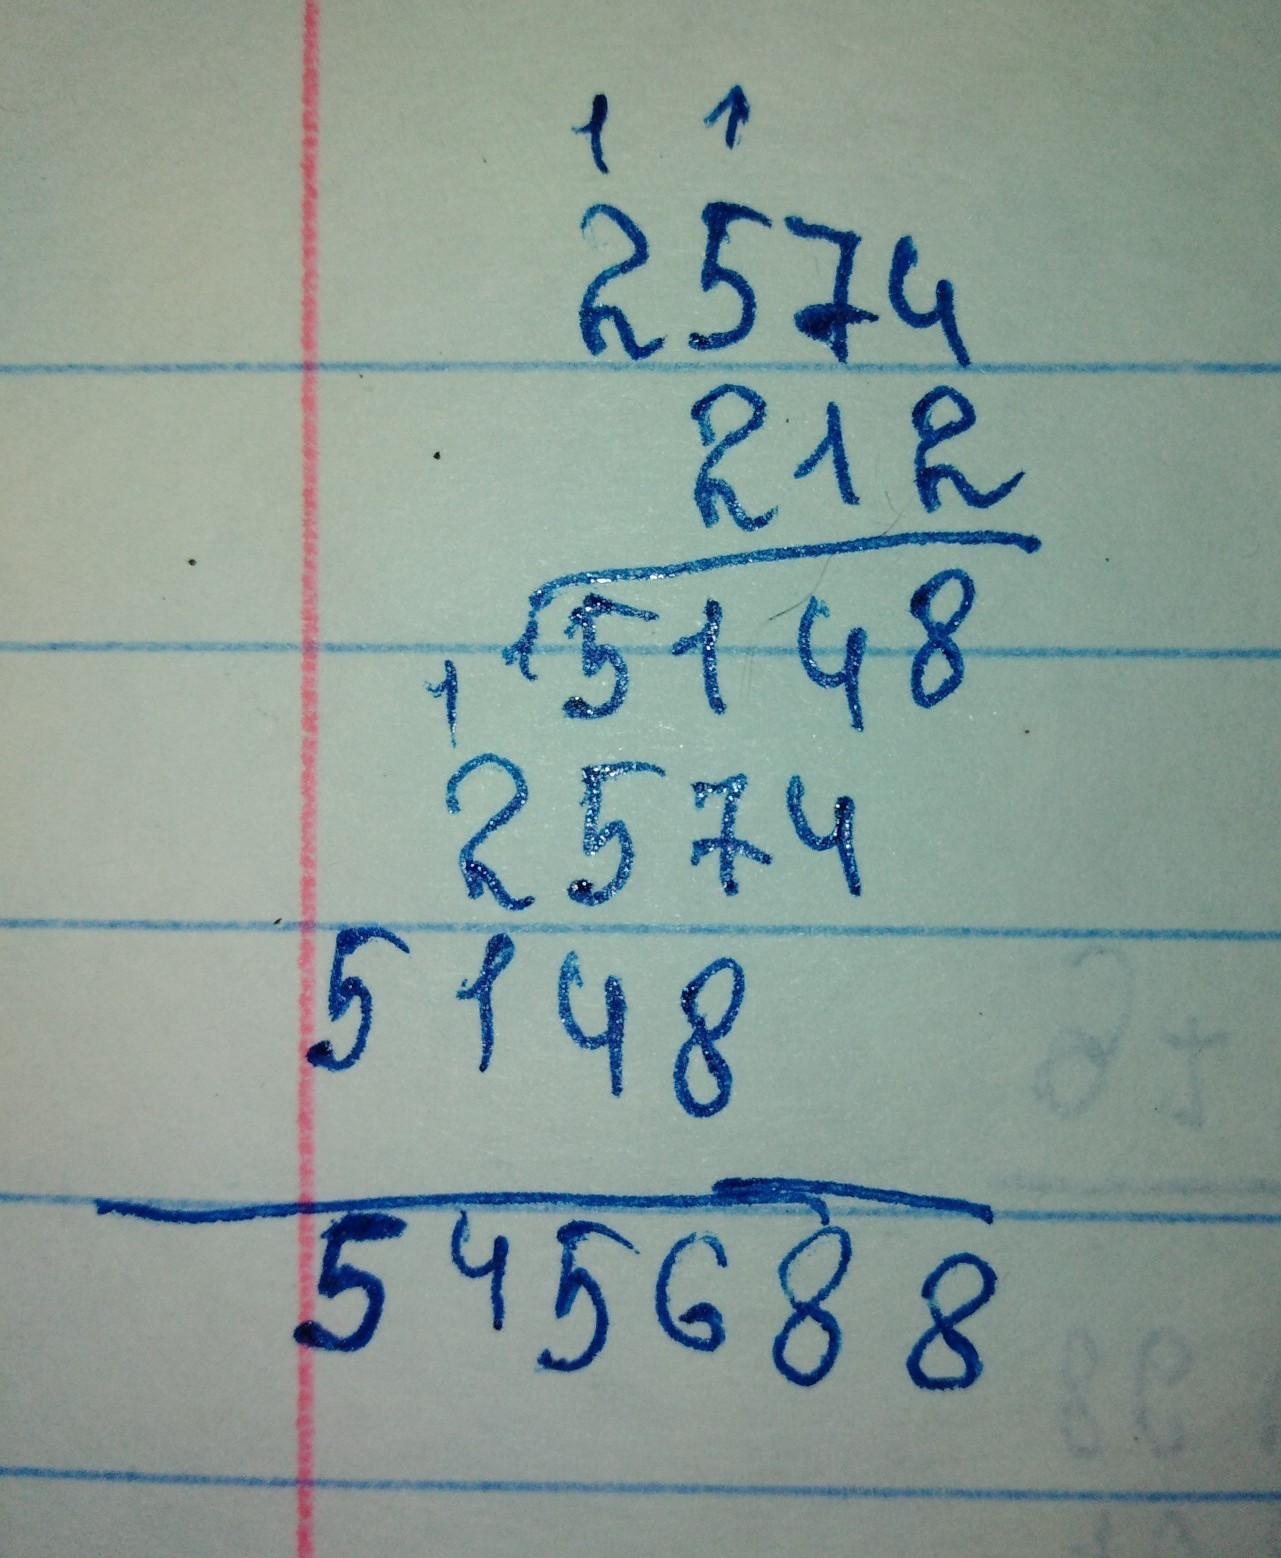 1 1
2574
212
1 5148
1
2574
5148
545688